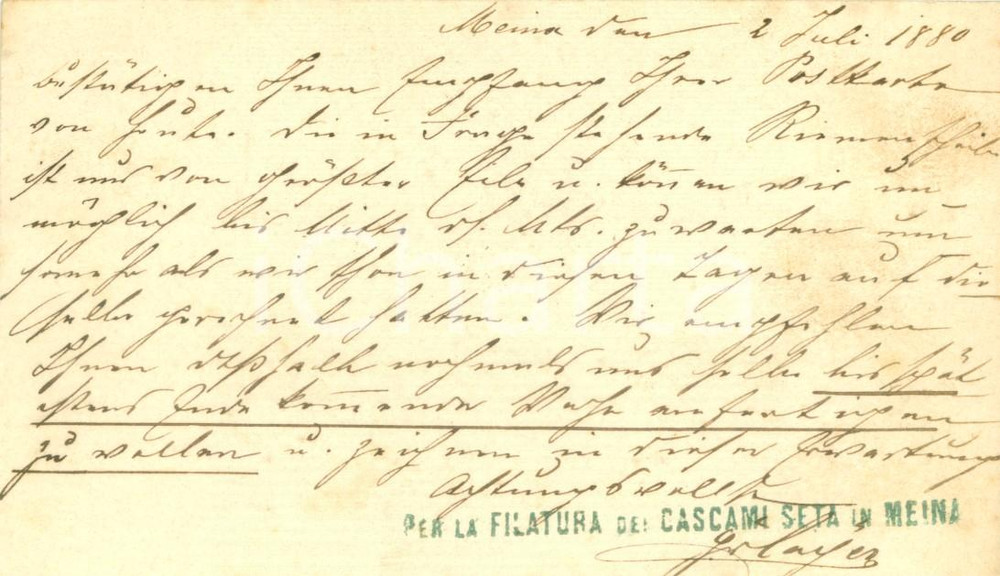 Meina den 2 Juli 1880
bestätigen Ihnen Empfang Ihrer Postkarte
von heute. Die in Frage stehende Riemenscheibe
ist uns von größter Eile u. können wir un
möglich bis Mitte ds. Mts. zuwarten um
somehr als wir schon in diesen Tagen auf die
selbe gerechnet hatten. Wir empfehlen
Ihnen deßhalb nochmals uns selbe bis spät
estens Ende kommende Woche anfertigen
zu wollen u. zeichnen in dieser Erwartung
Achtungsvollst
PER LA FILATURA DEI CASCAMI SETA IN MEINA